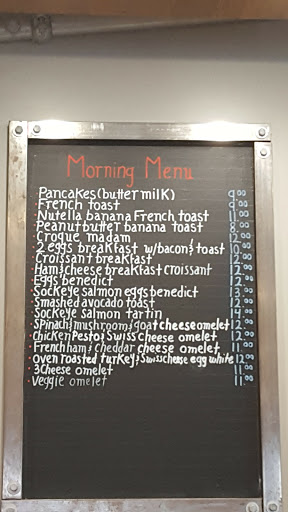 Morning Menu
Pancakes (buttermilk) 9.00
French toast 9.00
Nutella banana French toast 11.00
Peanut butter banana toast 8.00
Croque madam 12.00
2 eggs breakfast w/bacon & toast 10.00
Croissant breakfast 12.00
Ham & cheese breakfast croissant 12.00
Eggs benedict 12.00
Sockeye salmon eggs benedict 13.00
Smashed avocado toast 12.00
Sockeye salmon tartin 14.00
Spinach, mushroom & goat cheese omelet 12.00
Chicken Pesto & Swiss cheese omelet 12.00
French ham & cheddar cheese omelet 11.00
Oven roasted turkey & Swiss cheese egg white 12.00
3 Cheese omelet 11.00
Veggie omelet 11.00